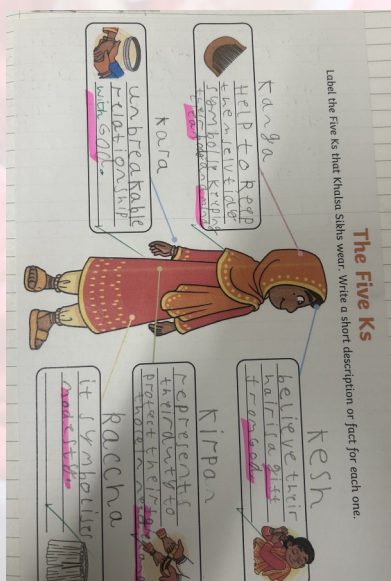 The Five Ks
Label the Five Ks that Khalsa Sikhs wear. Write a short description or fact for each one.
kanga
Help to keep
themselvtider
symbolly keeping
clean
kara
unbreakable
relationship
with God.
kesh
believe their
hair is a gift
from God
kirpan
reprerents
their duty to
protect their
raccha
it symbolises
modesty.